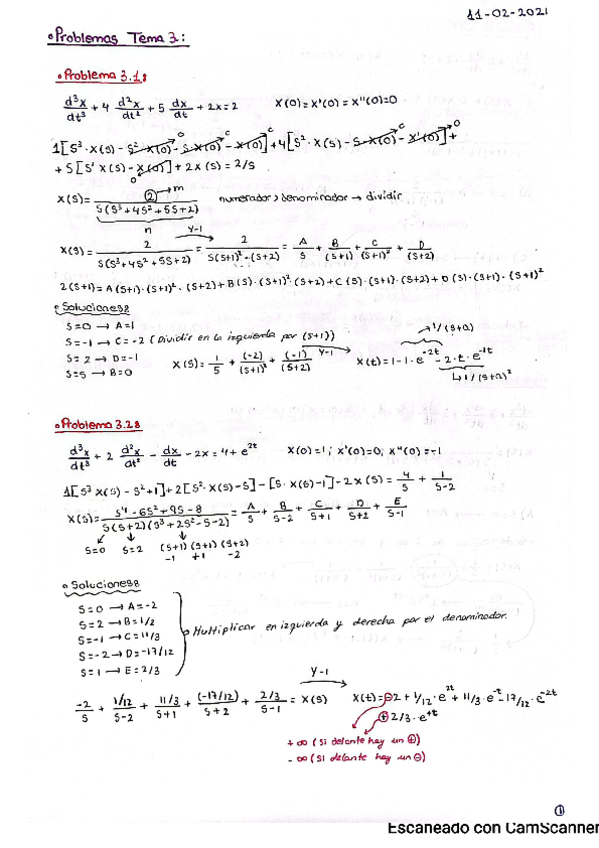 11-02-2021
•Problemas Tema 3:
•Problema 3.1:
d³x/dt³ + 4 d²x/dt² + 5 dx/dt + 2x = 2   X(0)=X'(0)=X''(0)=0
1[S³·X(S) - S²·X(0) - S·X(0) - X(0)] + 4[S²·X(S) - S·X(0) - X'(0)] +
+ 5[S'X(S) - X(0)] + 2X(S) = 2/S
X(S) = 2 / S(S³+4S²+5S+2)   numerador > denominador → dividir
m
n
X(S) = 2 / S(S³+4S²+5S+2) = 2 / S(S+1)²·(S+2) = A/S + B/(S+1) + C/(S+1)² + D/(S+2)
2(S+1) = A(S+1)·(S+1)²·(S+2) + B(S)·(S+1)²·(S+2) + C(S)·(S+1)·(S+2) + D(S)·(S+1)·(S+1)²
•Soluciones:
S=0 → A=1
S=-1 → C=-2 (Dividir en la izquierda por (S+1))
S=2 → D=-1
S=s → B=0
X(S) = 1/S + (-2)/(S+1)² + (-1)/(S+2)   X(t) = 1-1·e^-2t - 2·t·e^-1t
→ 1/(s+a)
↳ 1/(s+a)²
•Problema 3.2:
d³x/dt³ + 2 d²x/dt² - dx/dt - 2x = 4 + e^2t   X(0)=1; X'(0)=0; X''(0)=-1
1[S³X(S) - S²+1] + 2[S²·X(S)-S] - [S·X(S)-1] - 2X(S) = 4/S + 1/S-2
X(S) = S⁴-6S²+9S-8 / S(S+2)(S³+2S²-S-2) = A/S + B/S-2 + C/S+1 + D/S+2 + E/S-1
S=0   S=2   (S+1)(S+1)(S+2)
-1   +1   -2
•Soluciones:
S=0 → A=-2
S=2 → B=1/2
S=-1 → C=11/3
S=-2 → D=-17/12
S=1 → E=2/3
Multiplicar en izquierda y derecha por el denominador.
-2/S + 1/12/S-2 + 11/3/S+1 + (-17/12)/S+2 + 2/3/S-1 = X(S)   X(t) = -2 + 1/12·e^2t + 11/3·e^-t - 17/12·e^-2t
+ 2/3·e^+t
+∞ (Si delante hay un ⊕)
-∞ (Si delante hay un ⊖)
1
Escaneado con CamScanner